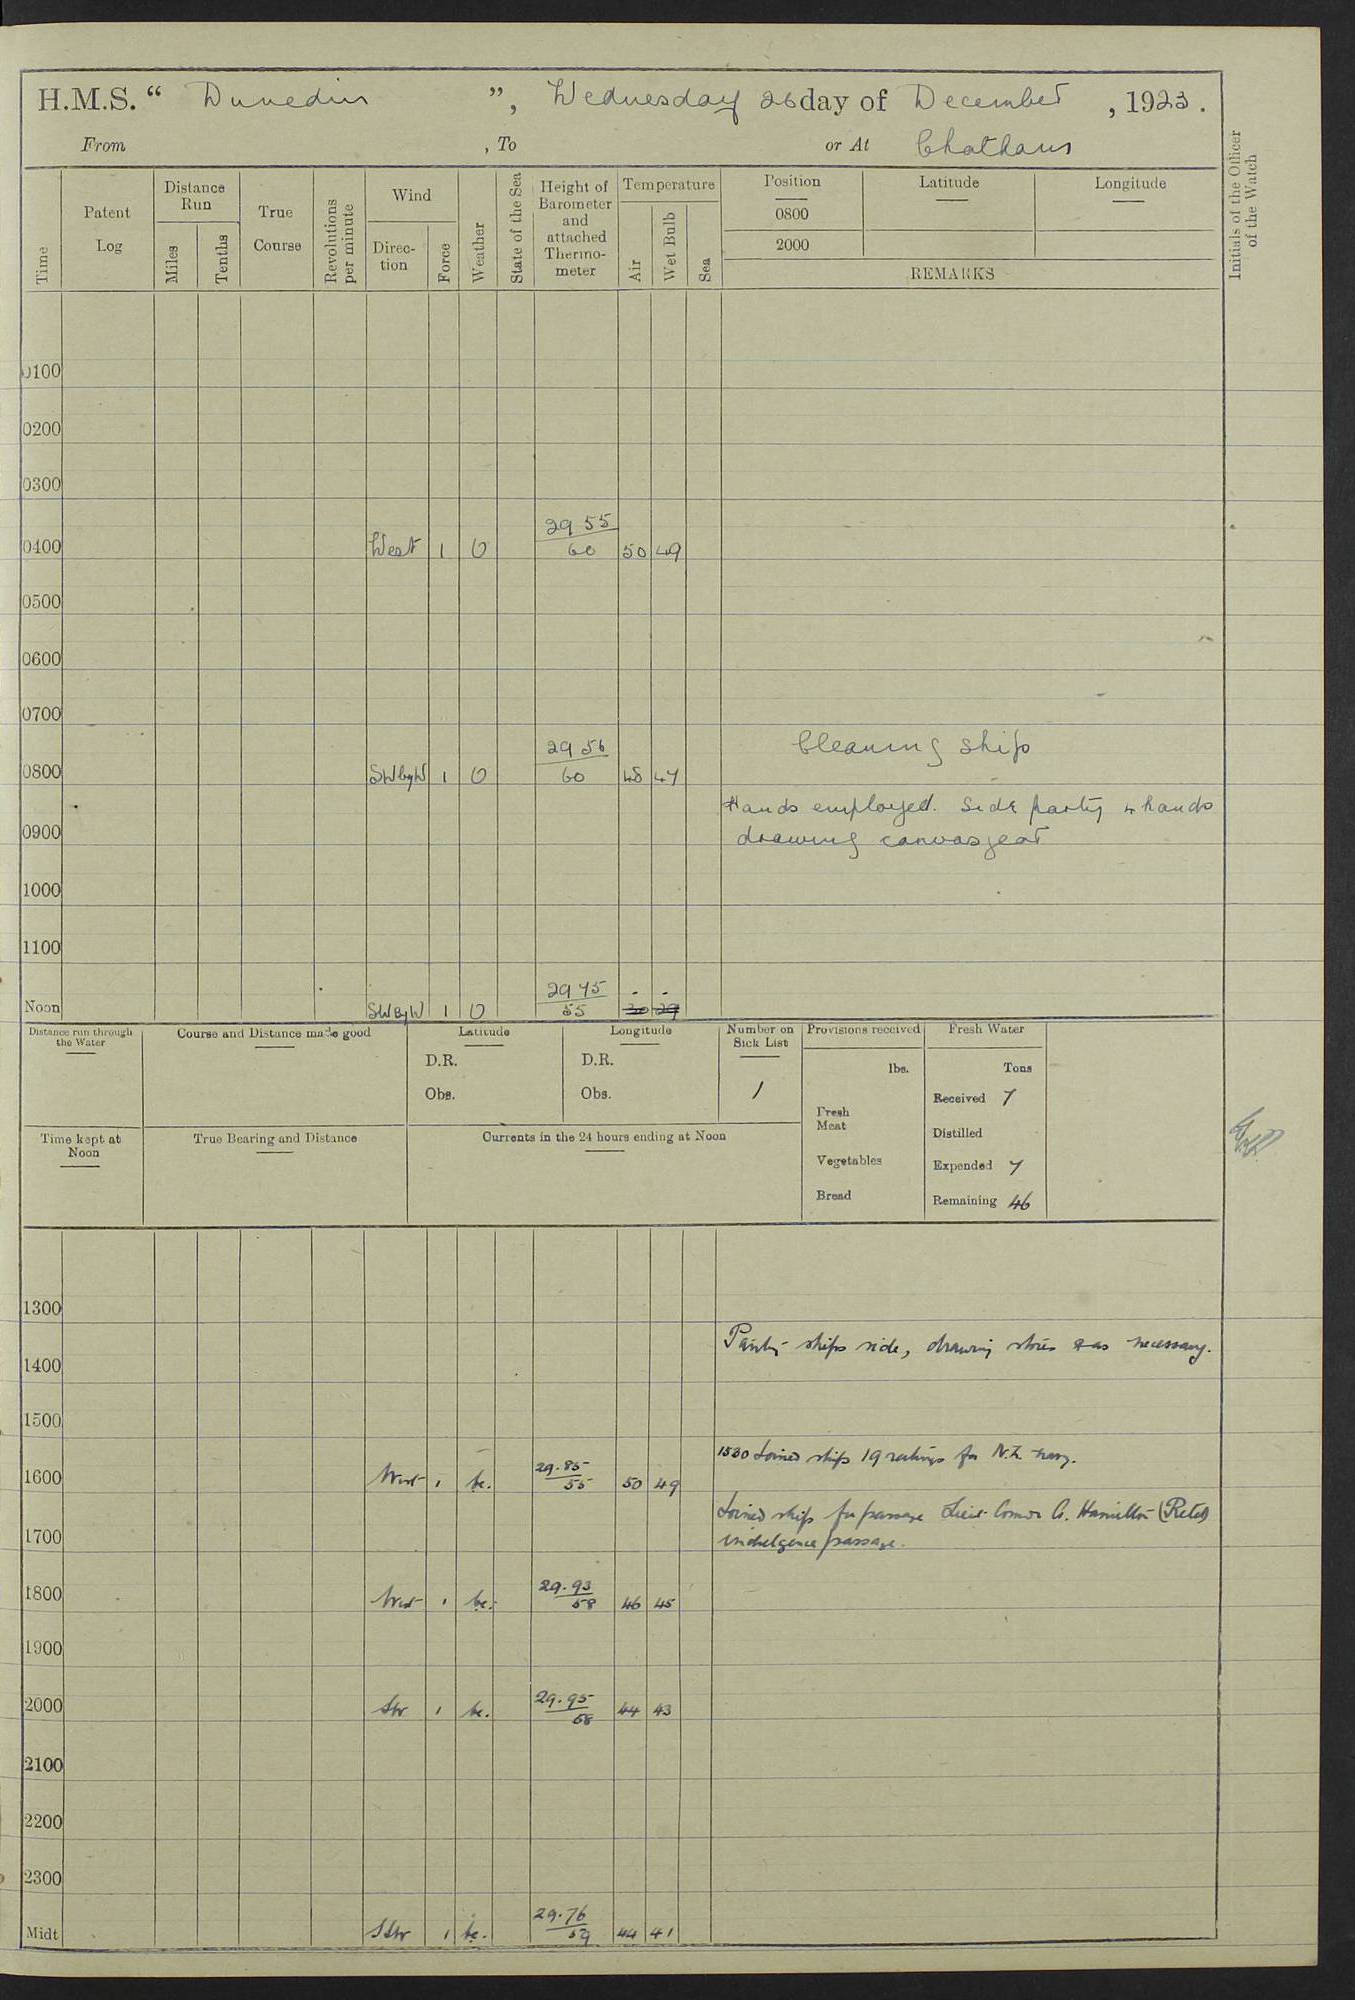 H.M.S. “ Dunedin ”, Wednesday 26 day of December, 1923.
From , To or At Chatham
Time
Patent Log
Distance Run
Miles
Tenths
True Course
Revolutions per minute
Wind
Direction
Force
Weather
State of the Sea
Height of Barometer and attached Thermometer
Temperature
Air
Wet Bulb
Sea
Position
Latitude
Longitude
0800
2000
REMARKS
Initials of the Officer of the Watch
0100
0200
0300
0400 West 1 O 29 55 / 60 50 49
0500
0600
0700
Cleaning ship
0800 SWbyW 1 O 29 56 / 60 48 47
Hands employed. Side party & hands
0900 drawing canvas gear
1000
1100
Noon SWByW 1 O 29 75 / 55
Distance run through the Water
Course and Distance made good
Latitude
D.R.
Obs.
Longitude
D.R.
Obs.
Number on Sick List
1
Provisions received
lbs.
Fresh Meat
Vegetables
Bread
Fresh Water
Tons
Received 7
Distilled
Expended 7
Remaining 46
Time kept at Noon
True Bearing and Distance
Currents in the 24 hours ending at Noon
1300
Paintg ships side, drawing stores & as necessary.
1400
1500
1530 Joined ship 19 ratings for N.Z. navy.
1600 West 1 bc. 29.85 / 55 50 49
Joined ship for passage Lieut Comdr G. Hamilton (Retd)
1700 indulgence passage.
1800 West 1 bc. 29.93 / 58 46 45
1900
2000 SW 1 bc. 29.95 / 58 44 43
2100
2200
2300
Midt SSW 1 bc. 29.76 / 59 44 41